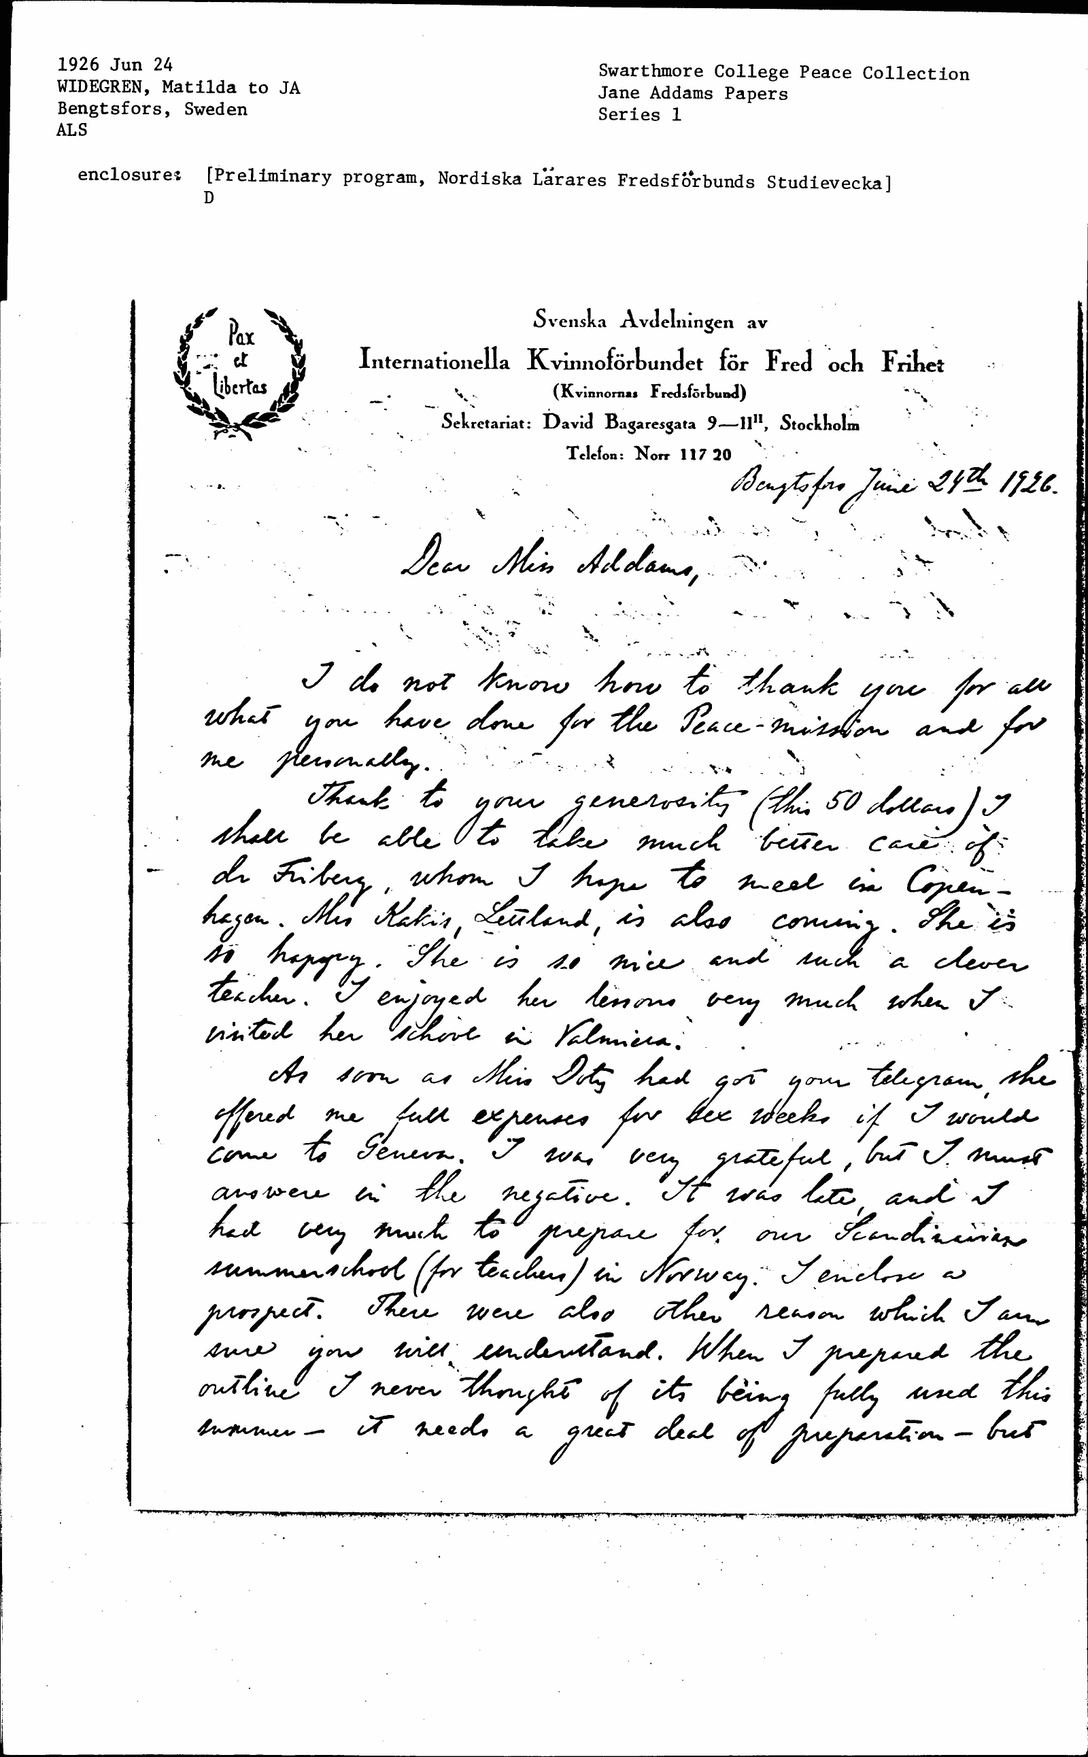 1926 Jun 24
WIDEGREN, Matilda to JA
Bengtsfors, Sweden
ALS
Swarthmore College Peace Collection
Jane Addams Papers
Series 1
enclosure: [Preliminary program, Nordiska Lärares Fredsförbunds Studievecka]
D
Pax
et
Libertas
Svenska Avdelningen av
Internationella Kvinnoförbundet för Fred och Frihet
(Kvinnornas Fredsförbund)
Sekretariat: David Bagaresgata 9—11II, Stockholm
Telefon: Norr 117 20
Bengtsfors June 24th 1926.
Dear Miss Addams,
I do not know how to thank you for all
what you have done for the Peace-mission and for
me personally.
Thank to your generosity (this 50 dollars) I
shall be able to take much better care of
dr Friberg, whom I hope to meet in Copen-
hagen. Mrs Kakis, Lettland, is also coming. She is
so happy. She is so nice and such a clever
teacher. I enjoyed her lessons very much when I
visited her school in Valmiera.
As soon as Miss Doty had got your telegram, she
offered me full expenses for sex weeks if I would
come to Geneva. I was very grateful, but I must
answere in the negative. It was late, and I
had very much to prepare for our Scandinavian
summerschool (for teachers) in Norway. I enclose a
prospect. There were also other reason which I am
sure you will understand. When I prepared the
outline I never thought of its being fully used this
summer — it needs a great deal of preparation — but